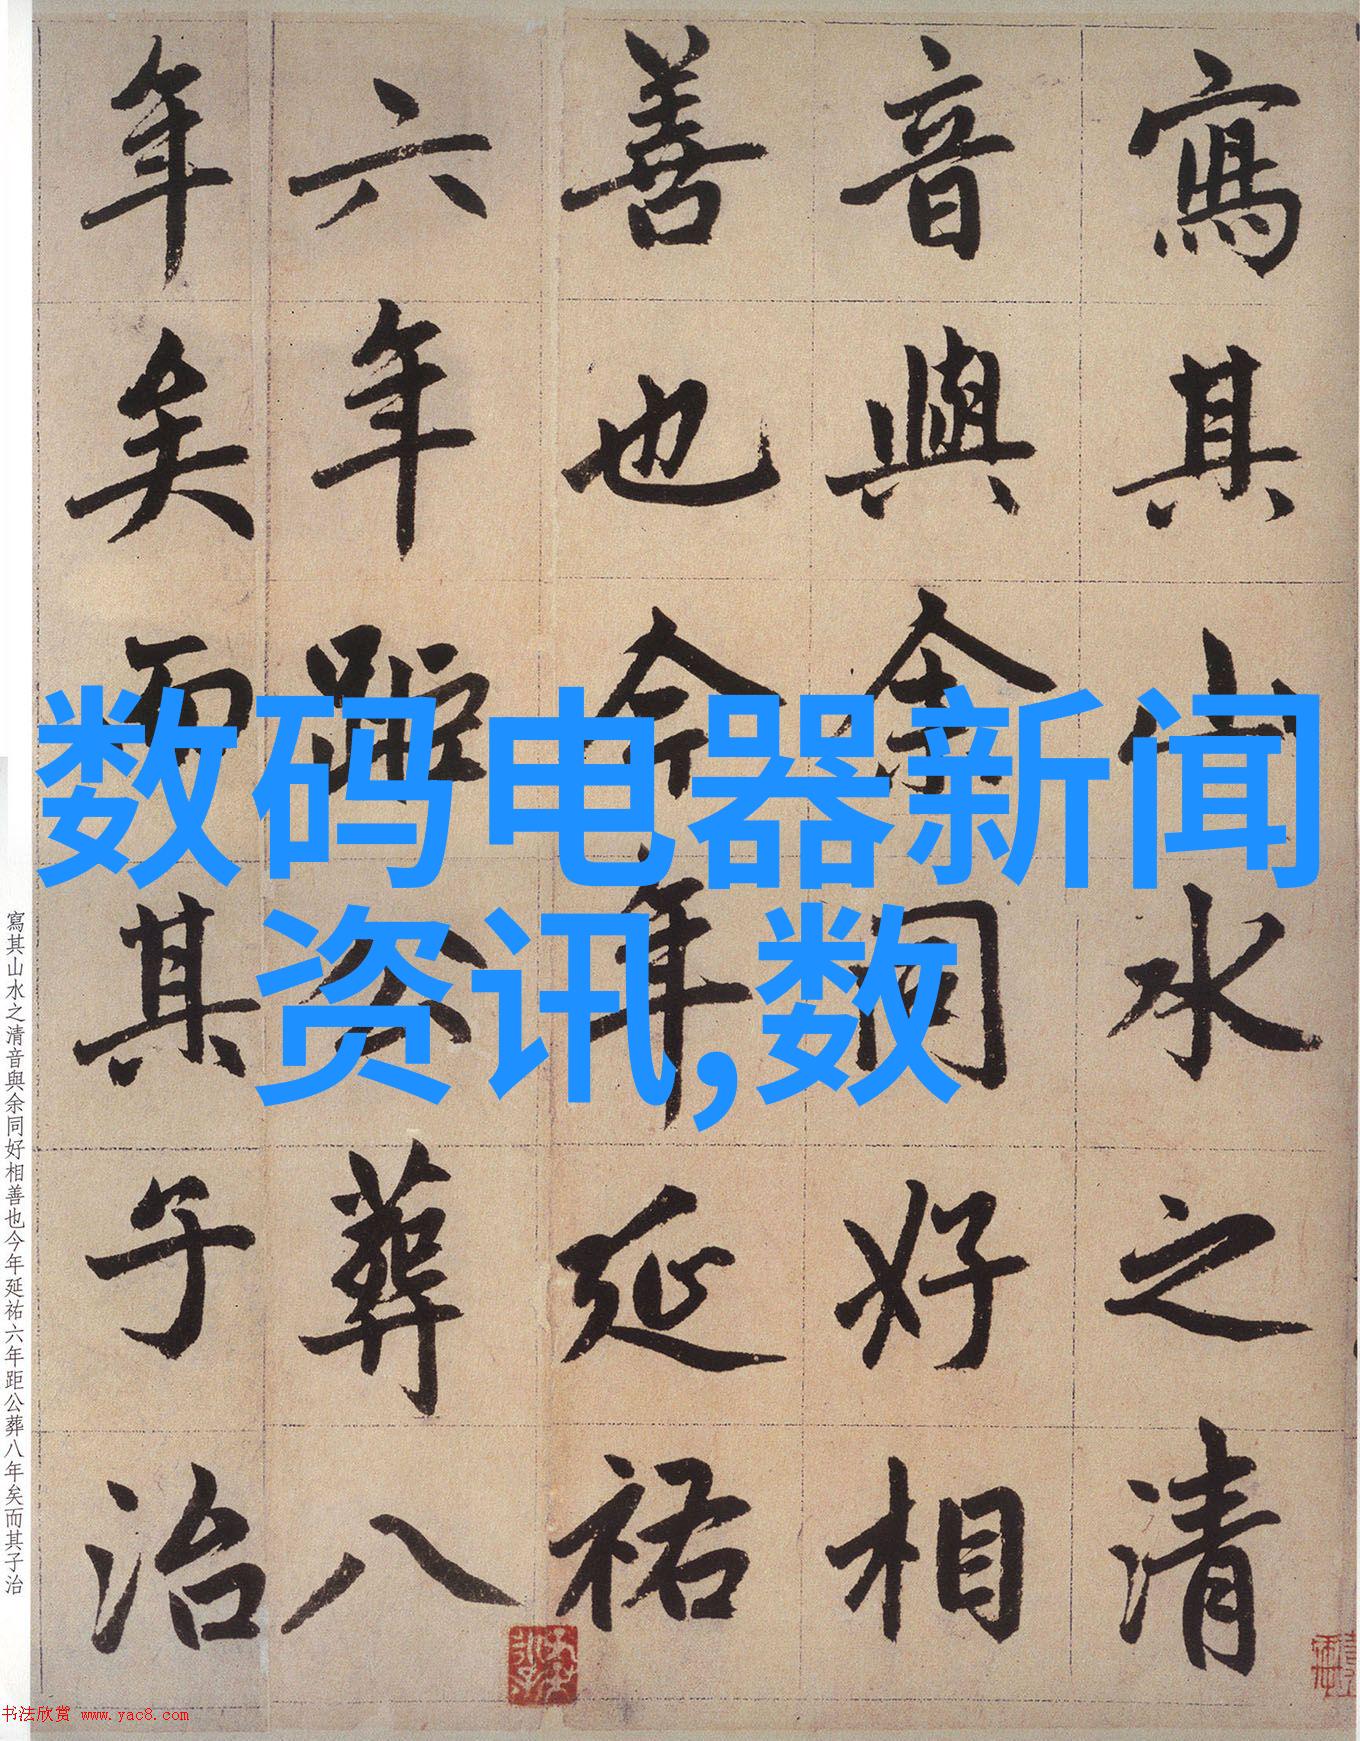 寫其山水之清
音與余同好相
善也今年延祐
六年距公葬八
年矣而其子治
数码电器新闻
资讯,数
寫其山水之清音與余同好相善也今年延祐六年距公葬八年矣而其子治
书法欣赏 www.yac8.com